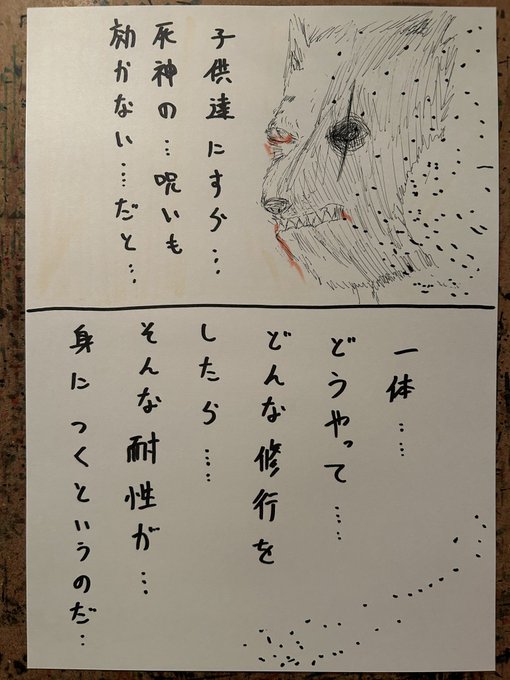 子供達にすら…
死神の…呪いも
効かない……だと…
一体……
どうやって……
どんな修行を
したら……
そんな耐性が…
身につくというのだ…